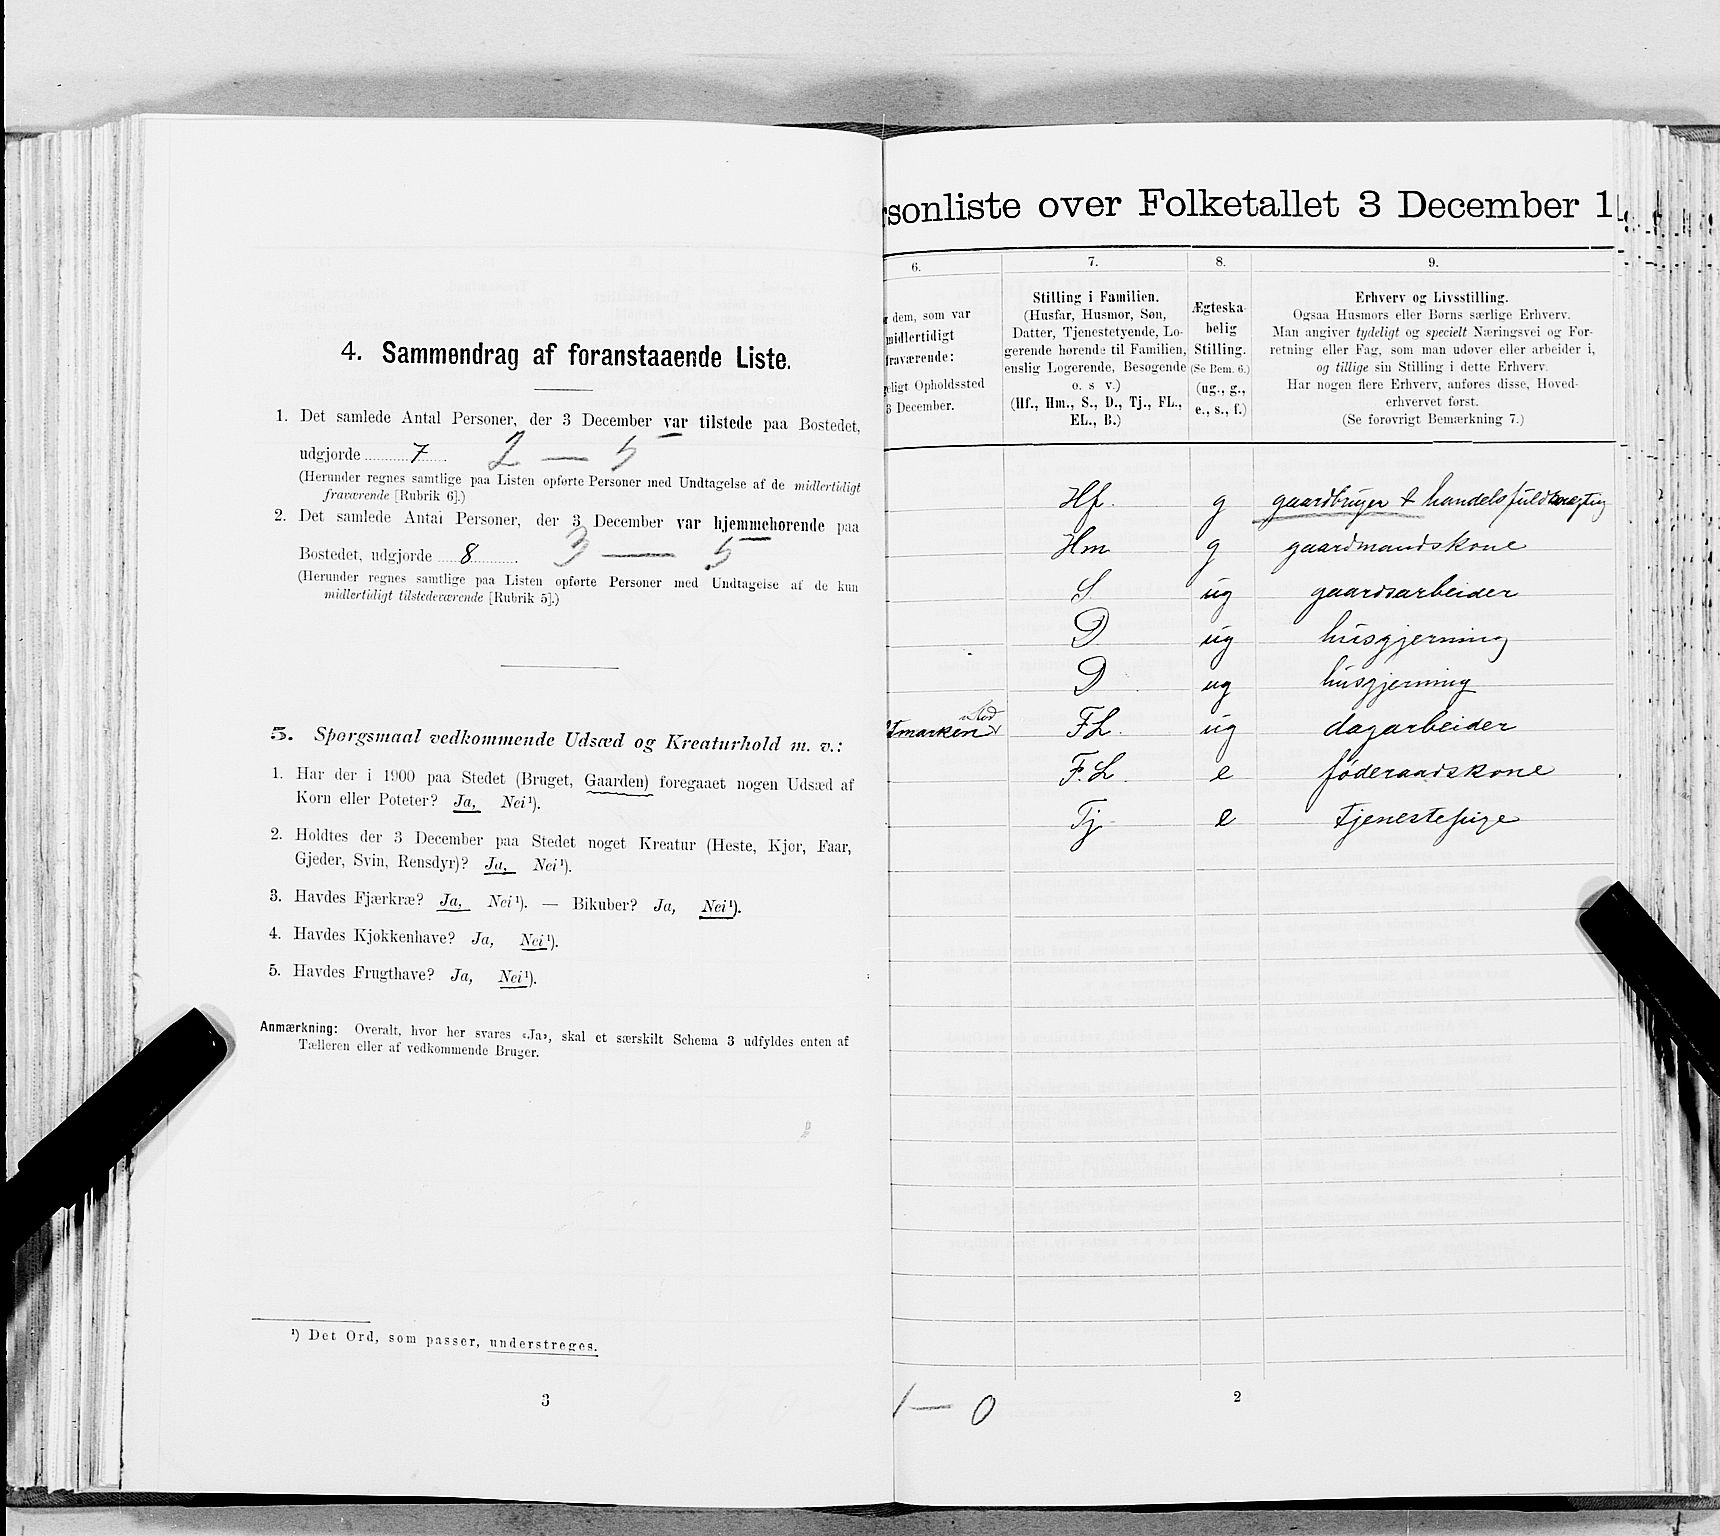 4. Sammendrag af foranstaaende Liste.
1. Det samlede Antal Personer, der 3 December var tilstede paa Bostedet,
udgjorde 7 2 — 5
(Herunder regnes samtlige paa Listen opførte Personer med Undtagelse af de midlertidigt
fraværende [Rubrik 6].)
2. Det samlede Antal Personer, der 3 December var hjemmehørende paa
Bostedet, udgjorde 8 3 — 5
(Herunder regnes samtlige paa Listen opførte Personer med Undtagelse af de kun
midlertidigt tilstedeværende [Rubrik 5].)
5. Spørgsmaal vedkommende Udsæd og Kreaturhold m. v.:
1. Har der i 1900 paa Stedet (Bruget, Gaarden) foregaaet nogen Udsæd af
Korn eller Poteter? Ja, Nei¹).
2. Holdtes der 3 December paa Stedet noget Kreatur (Heste, Kjør, Faar,
Gjeder, Svin, Rensdyr)? Ja, Nei¹).
3. Havdes Fjærkræ? Ja, Nei¹). — Bikuber? Ja, Nei¹).
4. Havdes Kjøkkenhave? Ja, Nei¹).
5. Havdes Frugthave? Ja, Nei¹).
Anmærkning: Overalt, hvor her svares «Ja», skal et særskilt Schema 3 udfyldes enten af
Tælleren eller af vedkommende Bruger.
¹) Det Ord, som passer, understreges.
3
rsonliste over Folketallet 3 December 1
6.
dem, som var
midlertidigt
fraværende:
geligt Opholdssted
3 December.
7.
Stilling i Familien.
(Husfar, Husmor, Søn,
Datter, Tjenestetyende, Lo-
gerende hørende til Familien,
enslig Logerende, Besøgende
o. s v.)
(Hf., Hm., S., D., Tj., FL.,
EL., B.)
8.
Ægteska-
belig
Stilling.
(Se Bem. 6.)
(ug., g.,
e., s., f.)
9.
Erhverv og Livsstilling.
Ogsaa Husmors eller Børns særlige Erhverv.
Man angiver tydeligt og specielt Næringsvei og For-
retning eller Fag, som man udøver eller arbeider i,
og tillige sin Stilling i dette Erhverv.
Har nogen flere Erhverv, anføres disse, Hoved-
erhvervet først.
(Se forøvrigt Bemærkning 7.)
Hf. g gaardbruger + handelsfuldmægtig
Hm g gaardmandskone
S ug gaardsarbeider
D ug husgjerning
D ug husgjerning
tmarken FL. ug dagarbeider
F.L. e føderaadskone
Tj e tjenestepige
1 — 0
2